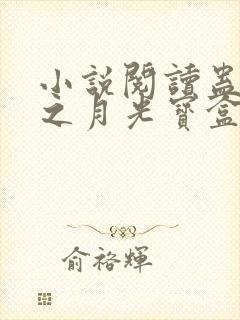 小説閱讀蛊
之月光寶盒
俞裕輝